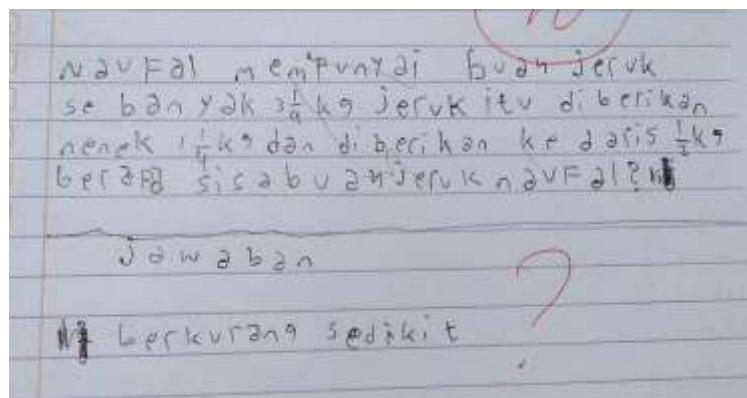 Navfal mempunyai buah jeruk
se banyak 3 1/4 kg jeruk itu diberikan
nenek 1 1/4 kg dan diberikan ke daris 1/2 kg
berapa sisa buah jeruk navfal?
Jawaban
?
berkurang sedikit